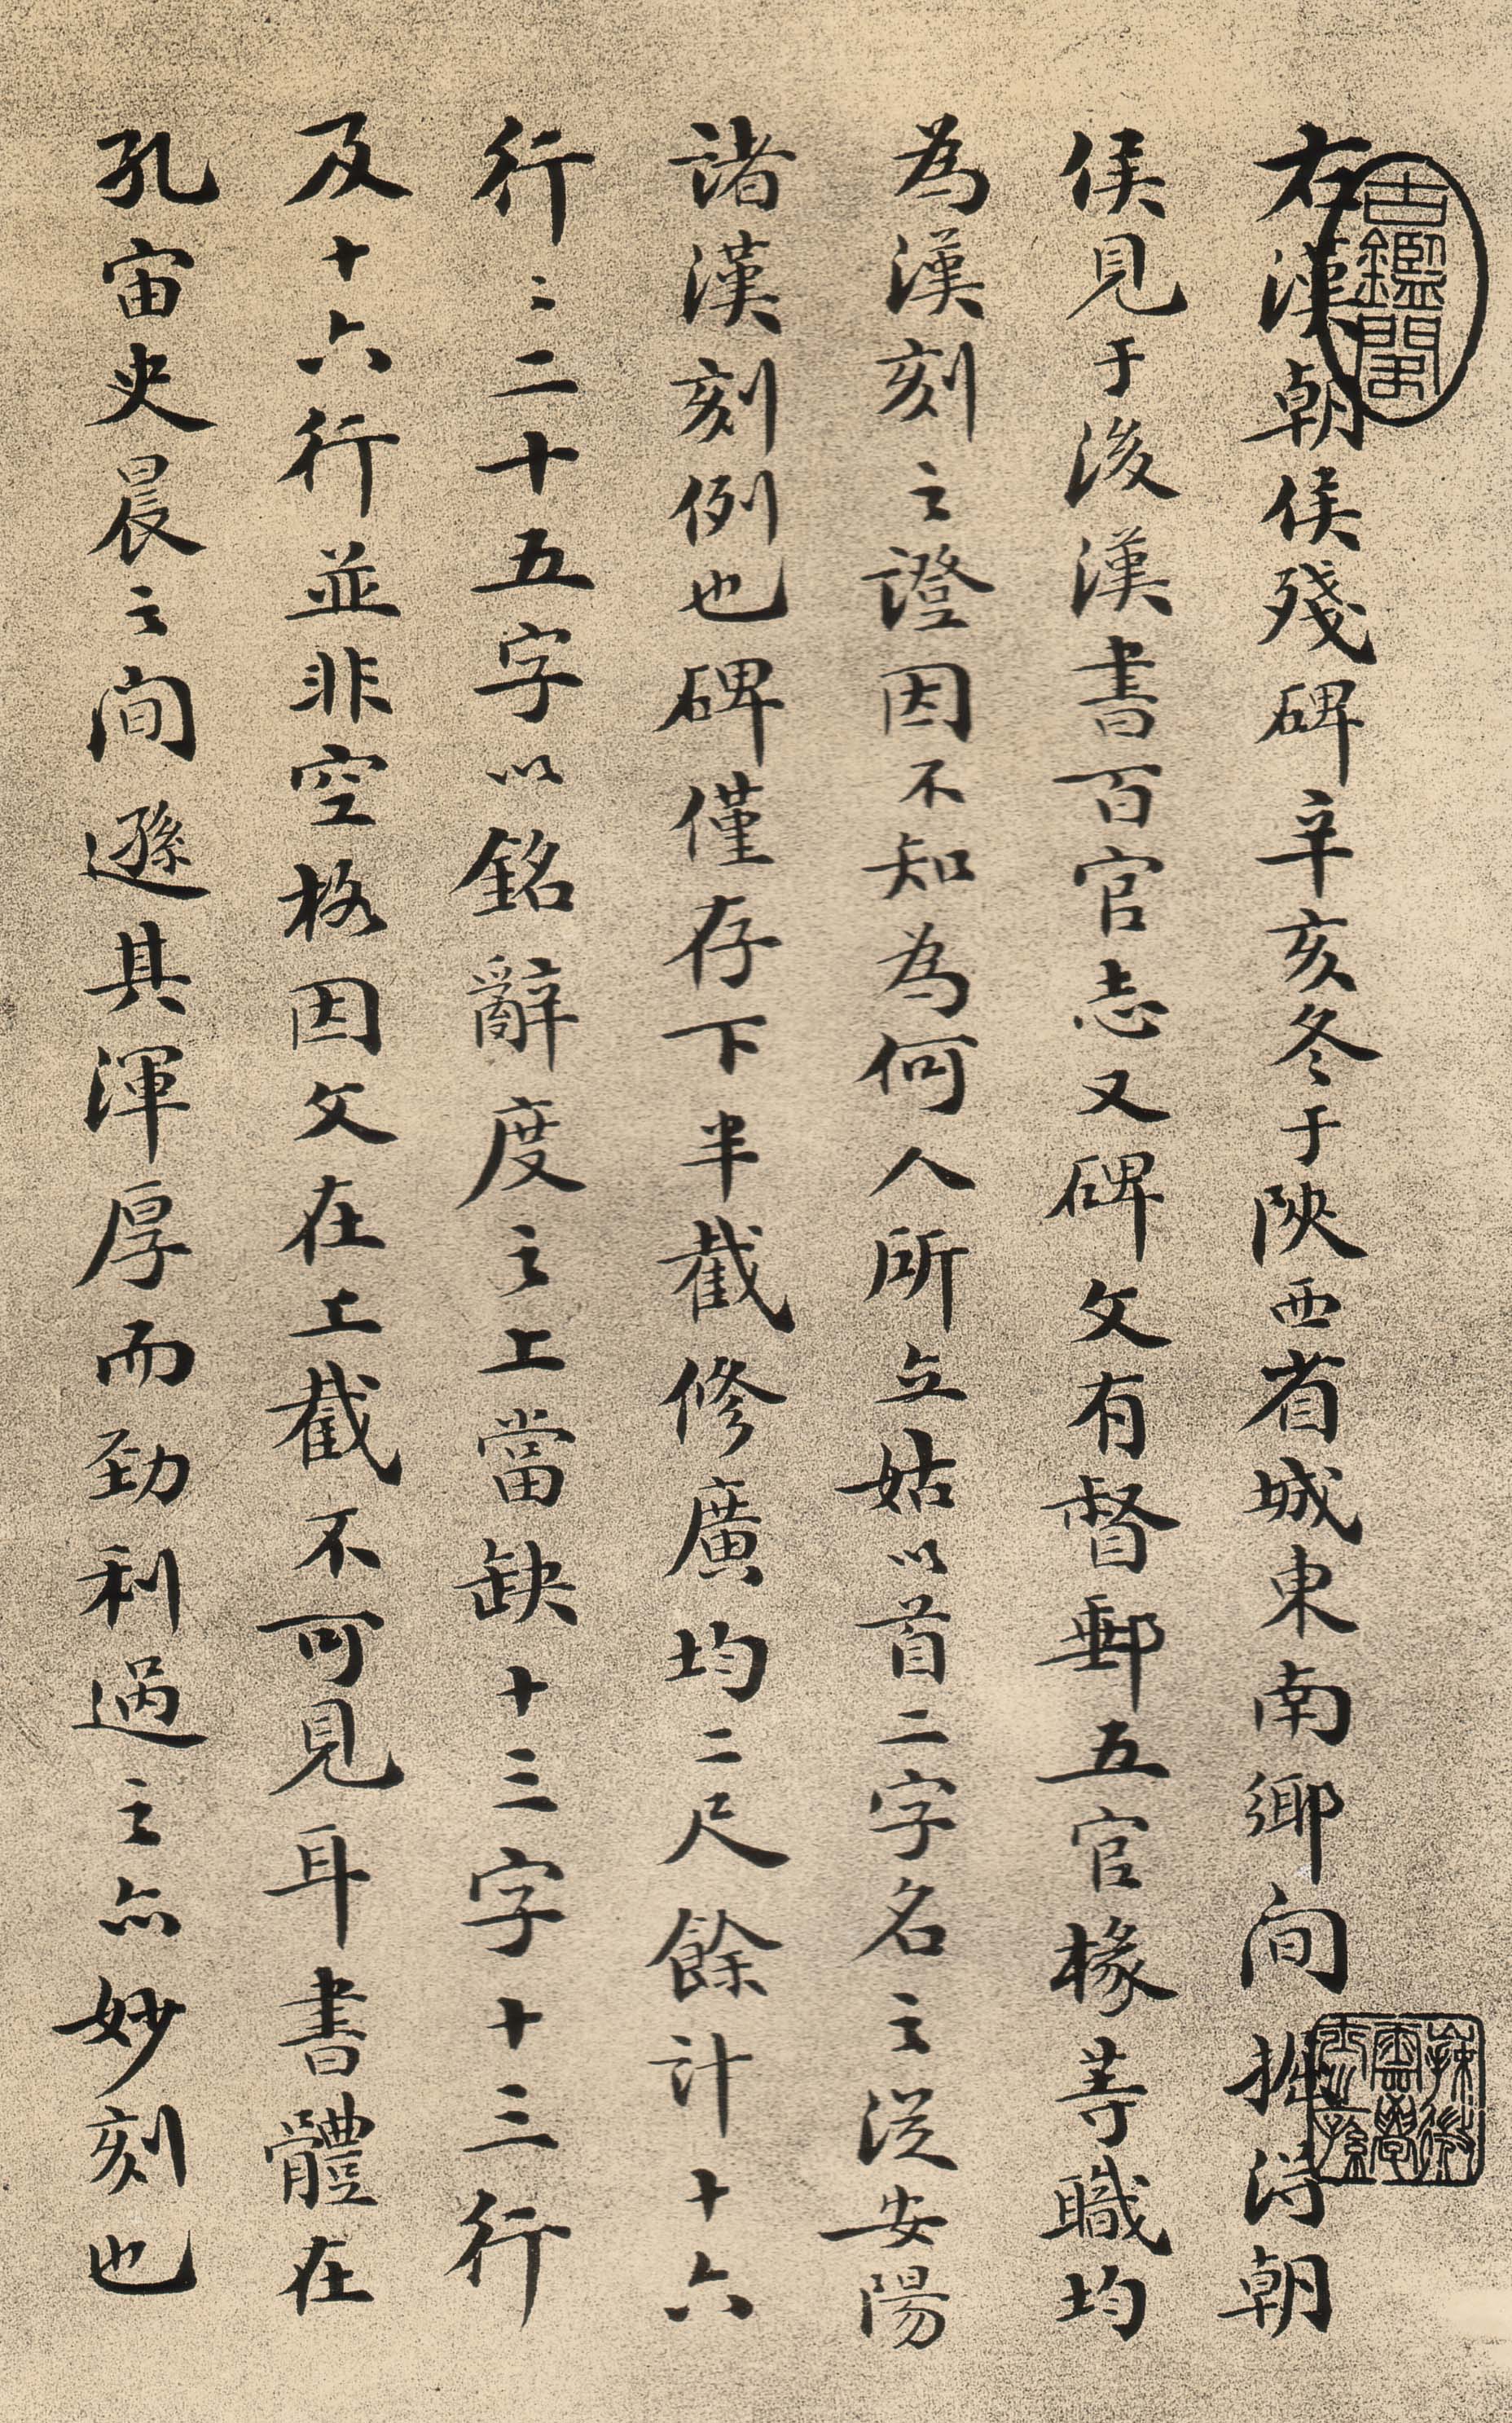 右漢朝侯殘碑辛亥冬于陝西省城東南鄉間掘得朝
侯見于後漢書百官志又碑文有督郵五官掾等職均
為漢刻之證因不知為何人所立姑以首二字名之從安陽
諸漢刻例也碑僅存下半截修廣均二尺餘計十六
行〻二十五字以銘辭度之上當缺十三字十三行
及十六行並非空格因文在上截不可見耳書體在
孔宙史晨之間遜其渾厚而勁利過之亦妙刻也
古鑑閣